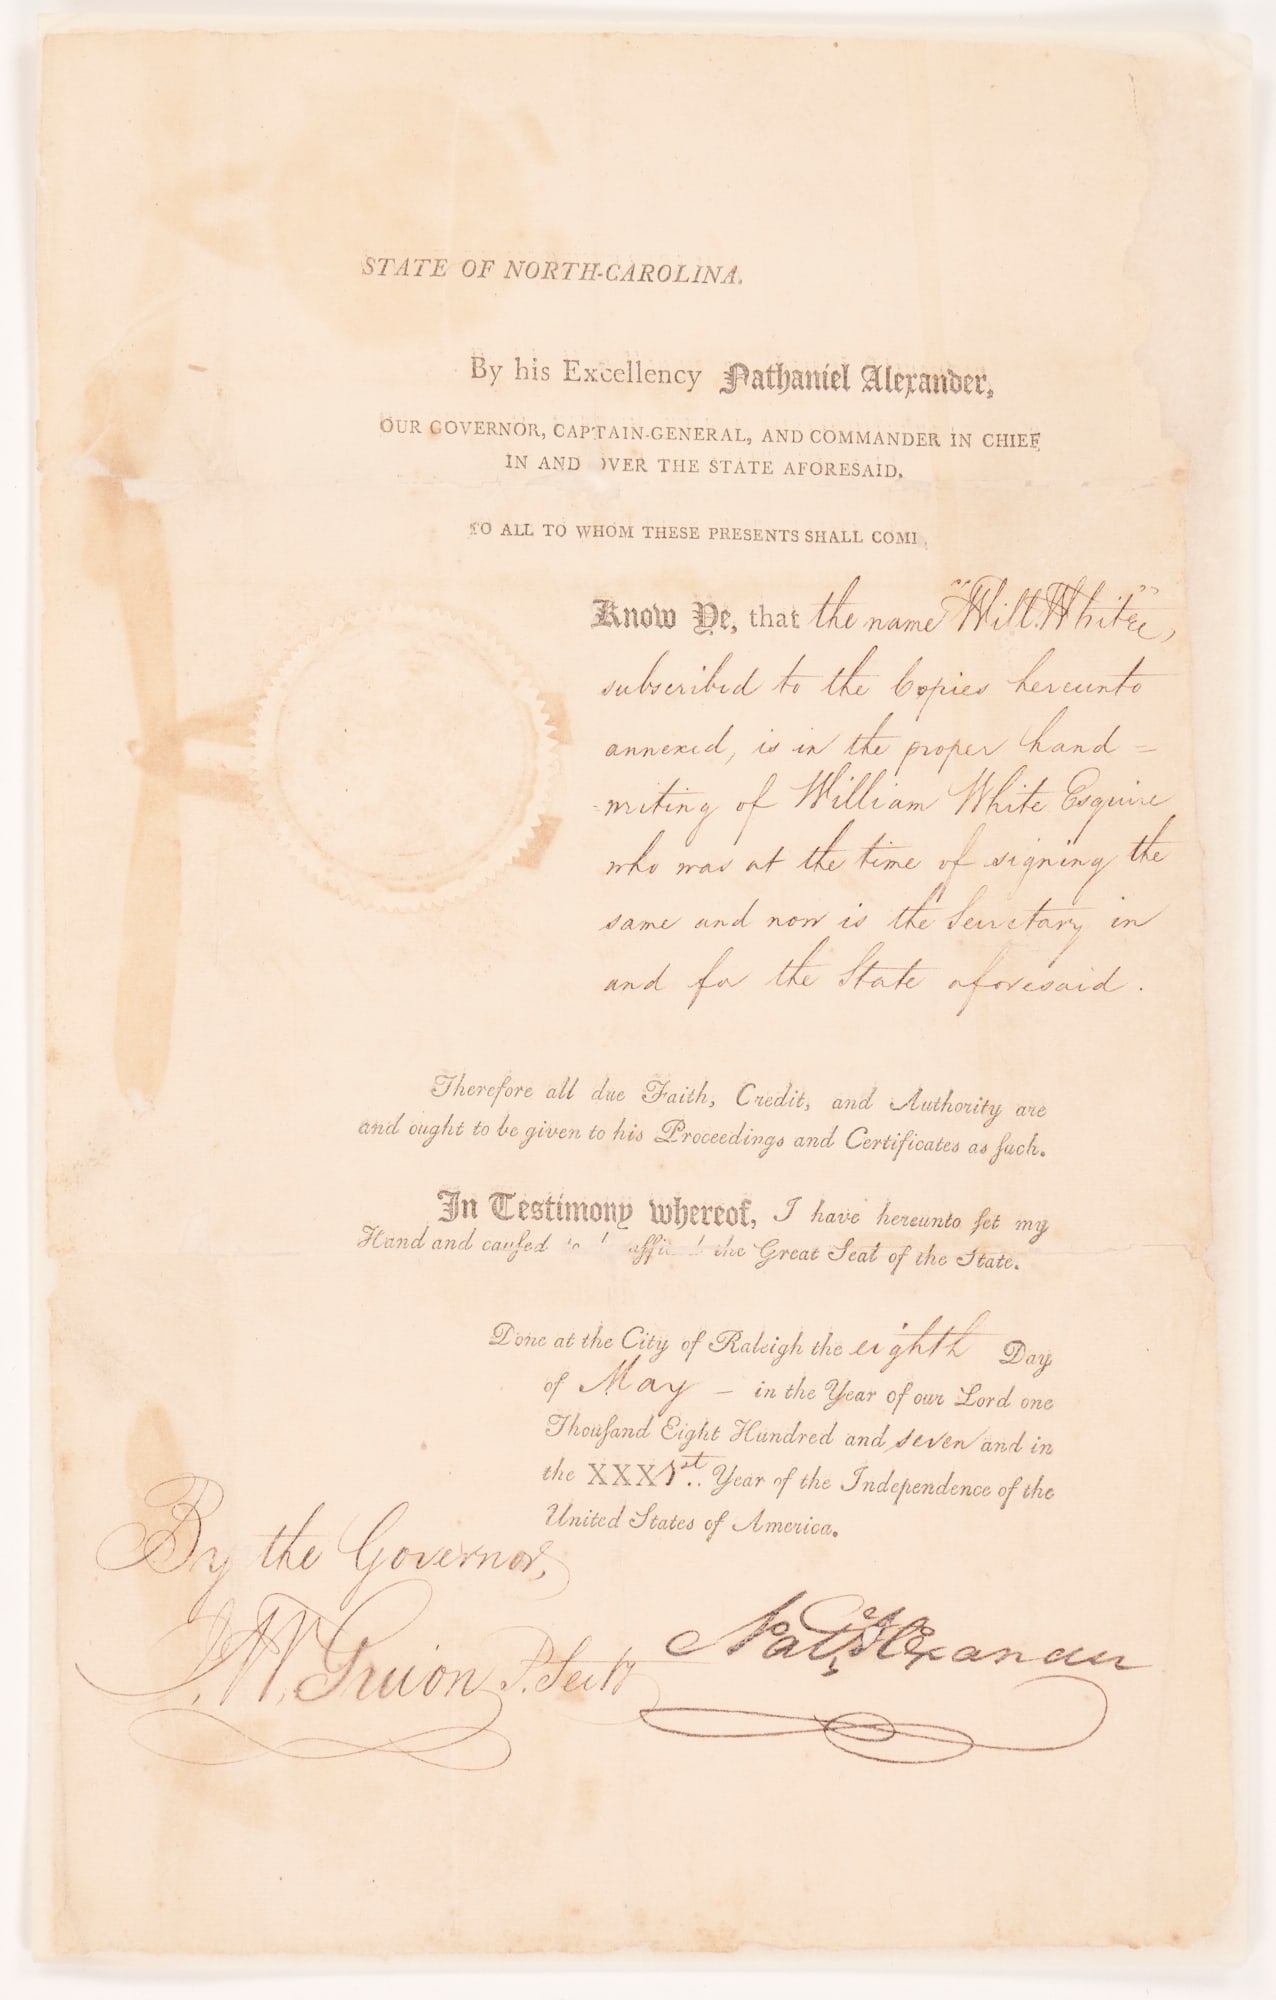 STATE OF NORTH-CAROLINA.
By his Excellency Nathaniel Alexander,
OUR GOVERNOR, CAPTAIN-GENERAL, AND COMMANDER IN CHIEF
IN AND OVER THE STATE AFORESAID.
TO ALL TO WHOM THESE PRESENTS SHALL COME
Know Ye, that the name "Will. White",
subscribed to the Copies hereunto
annexed, is in the proper hand =
=writing of William White Esquire
who was at the time of signing the
same and now is the Secretary in
and for the State aforesaid.
Therefore all due Faith, Credit, and Authority are
and ought to be given to his Proceedings and Certificates as ſuch.
In Testimony whereof, I have hereunto ſet my
Hand and cauſed the Great Seal of the State.
Done at the City of Raleigh the eighth Day
of May – in the Year of our Lord one
Thouſand Eight Hundred and seven and in
the XXXIst.. Year of the Independence of the
United States of America.
By the Governor,
Nat. Alexander
J. W. Guion P. Secty